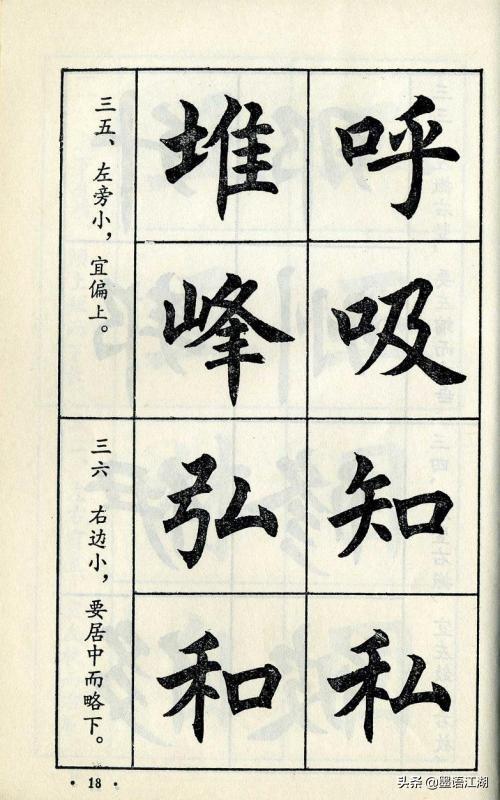 呼吸知私
堆峰弘和
三五、左旁小，宜偏上。
三六 右边小，要居中而略下。
· 18 ·
头条 @墨语江湖